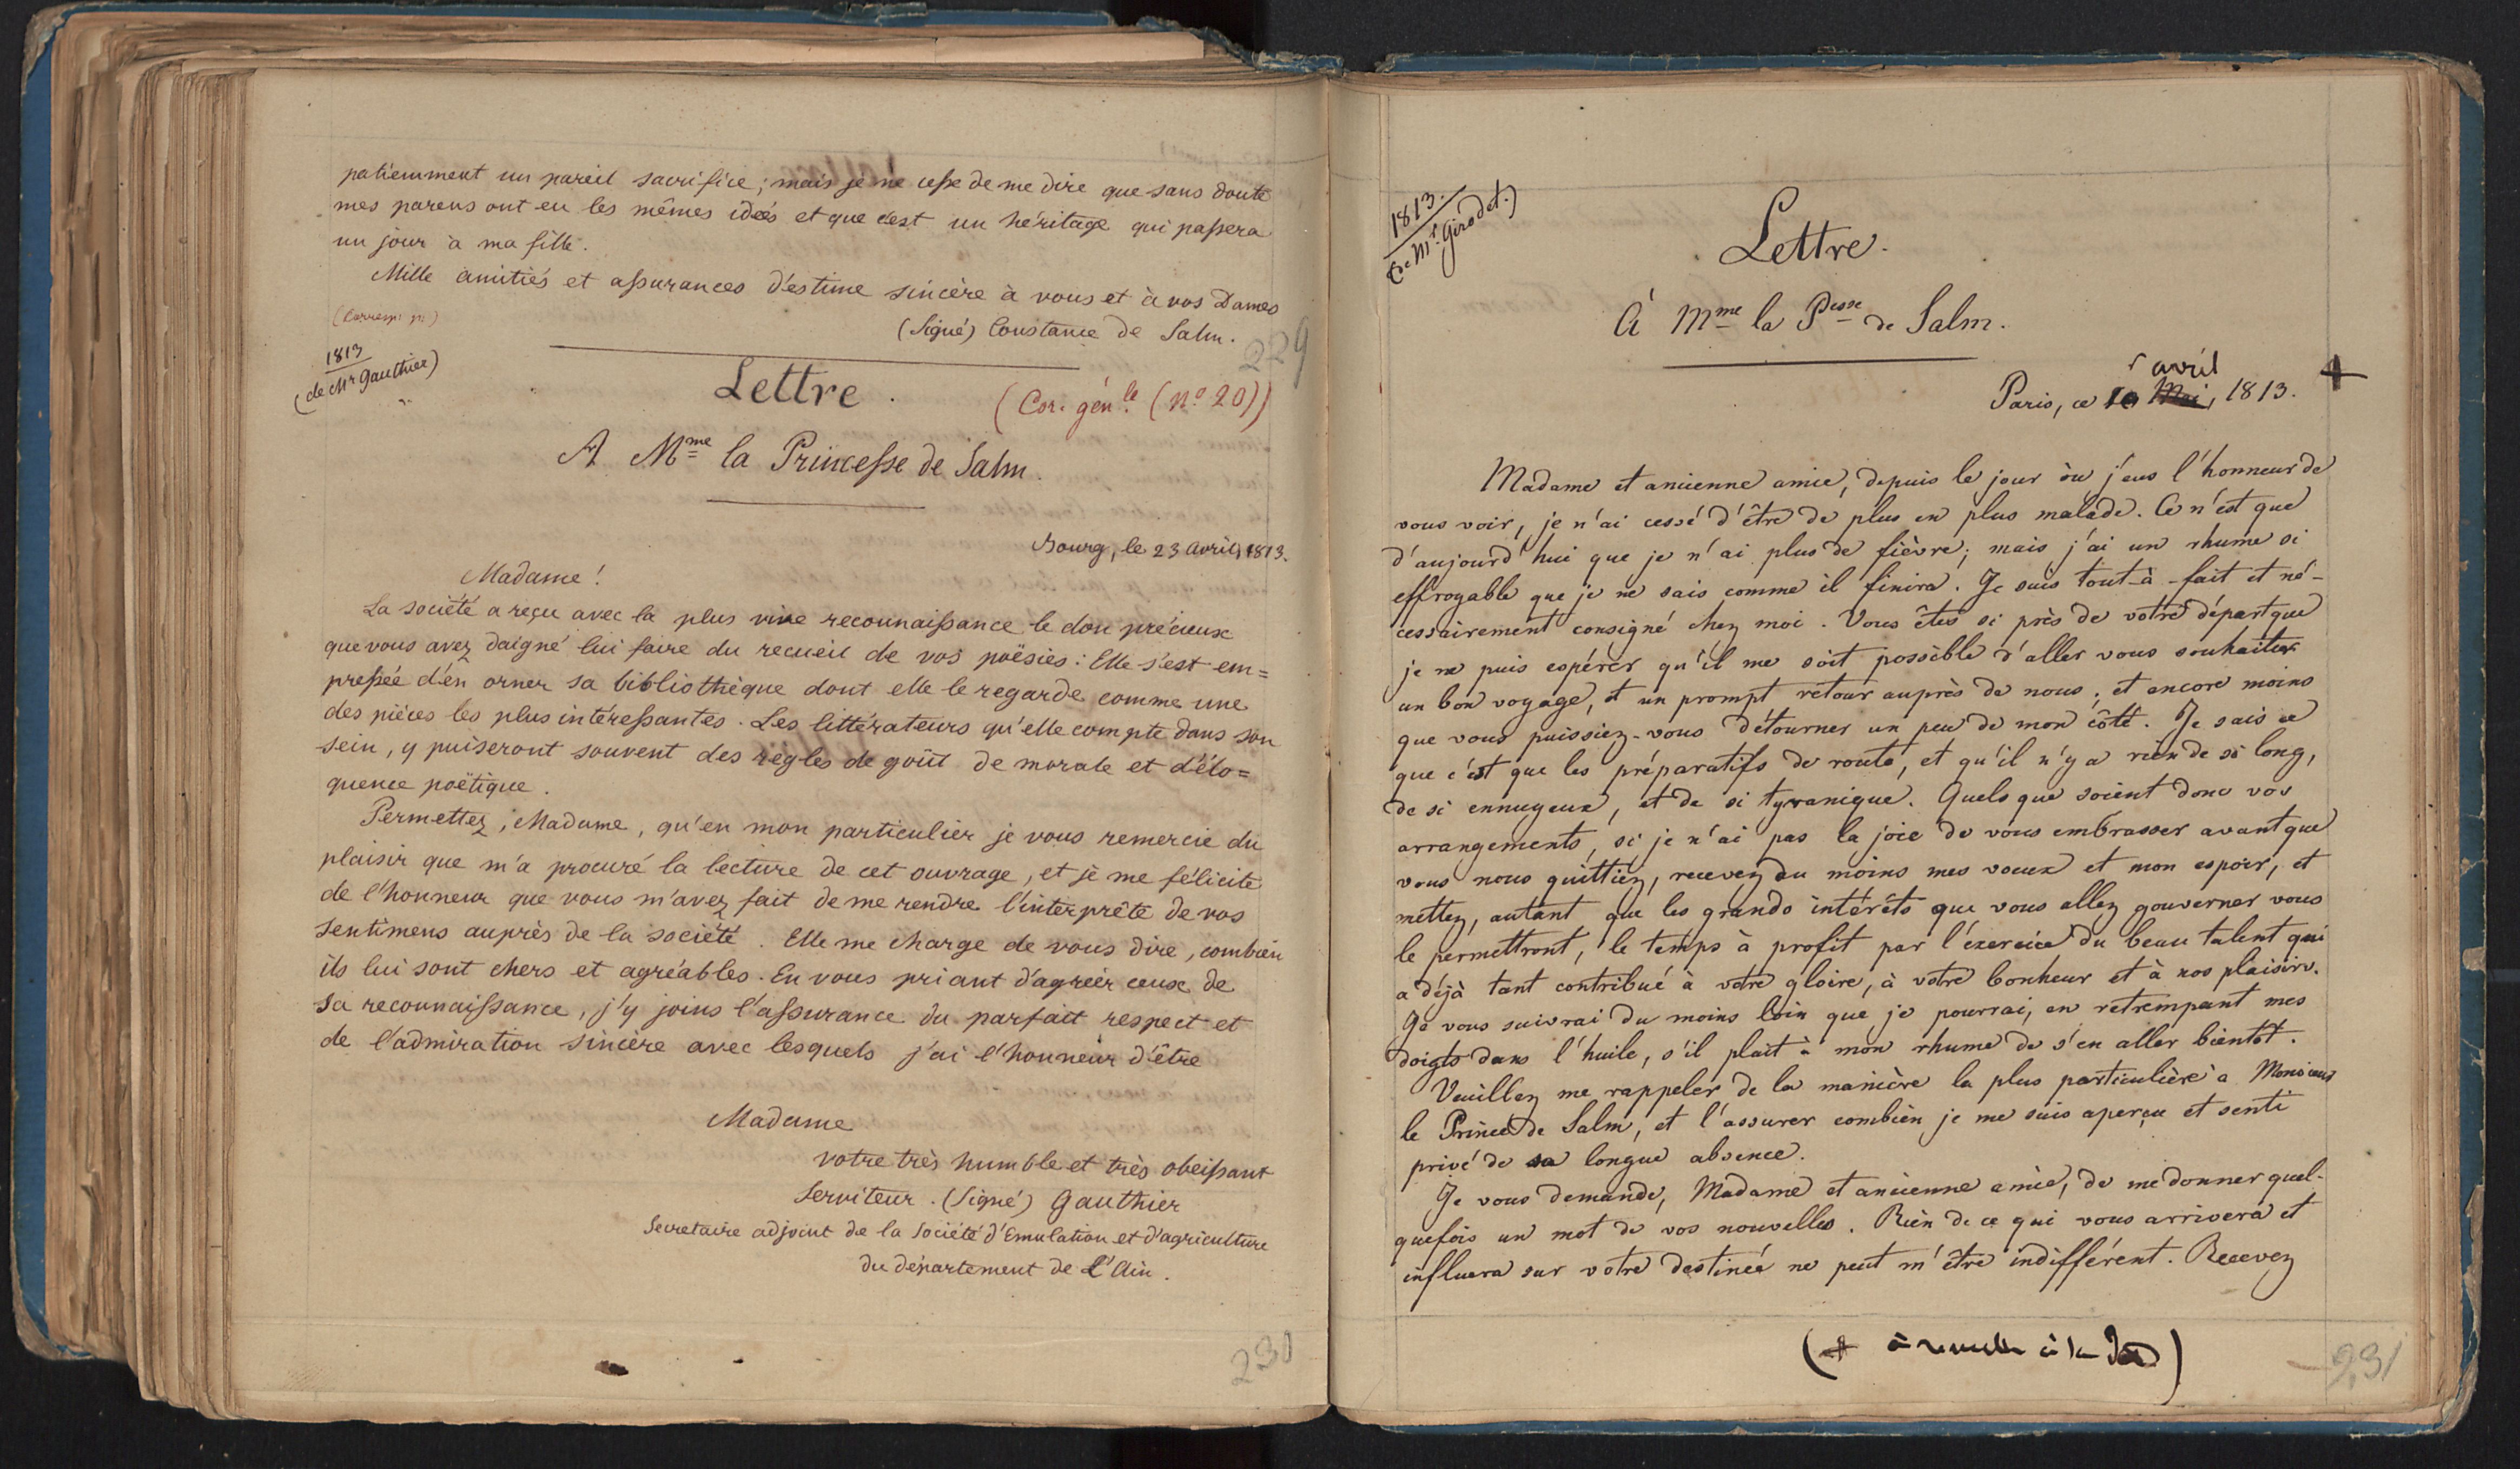 patiemment un pareil sacrifice; mais je ne cesse de me dire que sans doute
mes parens ont eu les mêmes idées et que c'est un héritage qui passera
un jour à ma fille.
Mille amitiés et assurances d'estime sincère à vous et à vos Dames
(Signé) Constance de Salm.
229
1813
(de Mr Gauthier)
Lettre.
(Cor. génle. (No 20))
A Mme la Princesse de Salm.
Bourg, le 23 avril, 1813.
Madame!
La société a reçu avec la plus vive reconnaissance le don précieux
que vous avez daigné lui faire du recueil de vos poësies: Elle s'est em=
pressée d'en orner sa bibliothèque dont elle le regarde comme une
des pièces les plus intéressantes. Les littérateurs qu'elle compte dans son
sein, y puiseront souvent des règles de goût de morale et d'élo=
quence poëtique.
Permettez, Madame, qu'en mon particulier je vous remercie du
plaisir que m'a procuré la lecture de cet ouvrage, et je me félicite
de l'honneur que vous m'avez fait de me rendre l'interprête de vos
sentimens auprès de la société. Elle me charge de vous dire, combien
ils lui sont chers et agréables. En vous priant d'agréer ceux de
sa reconnaissance, j'y joins l'assurance du parfait respect et
de l'admiration sincère avec lesquels j'ai l'honneur d'être
Madame
votre très humble et très obeissant
Serviteur. (Signé) Gauthier
Secretaire adjoint de la Société d'Emulation et d'agriculture
du département de L'Ain.
230
1813.
(De Mr. Girodet.)
Lettre.
À Mme la Pesse de Salm.
avril
Paris, ce 10 Mai, 1813.
Madame et ancienne amie, depuis le jour où j'eus l'honneur de
vous voir, je n'ai cessé d'être de plus en plus malade. Ce n'est que
d'aujourd'hui que je n'ai plus de fièvre; mais j'ai un rhume si
effroyable que je ne sais comme il finira. Je suis tout-à-fait et né-
cessairement consigné chez moi. Vous êtes si près de votre départ que
je ne puis espérer qu'il me soit possible d'aller vous souhaiter
un bon voyage, et un prompt retour auprès de nous; et encore moins
que vous puissiez-vous détourner un peu de mon côté. Je sais ce
que c'est que les préparatifs de route, et qu'il n'y a rien de si long,
de si ennuyeux, et de si tyranique. Quels que soient donc vos
arrangements, si je n'ai pas la joie de vous embrasser avant que
vous nous quittiez, recevez du moins mes voeux et mon espoir, et
mettez, autant que les grands intérêts que vous allez gouverner vous
le permettront, le temps à profit par l'exercice du beau talent qui
a déjà tant contribué à votre gloire, à votre bonheur et à nos plaisirs.
Je vous suivrai du moins loin que je pourrai, en retrempant mes
doigts dans l'huile, s'il plait à mon rhume de s'en aller bientôt.
Veuillez me rappeler de la manière la plus particulière à Monsieur
le Prince de Salm, et l'assurer combien je me suis aperçu et senti
privé de sa longue absence.
Je vous demande, Madame et ancienne amie, de me donner quel-
quefois un mot de vos nouvelles. Rien de ce qui vous arrivera et
influera sur votre destinée ne peut m'être indifférent. Recevez
231